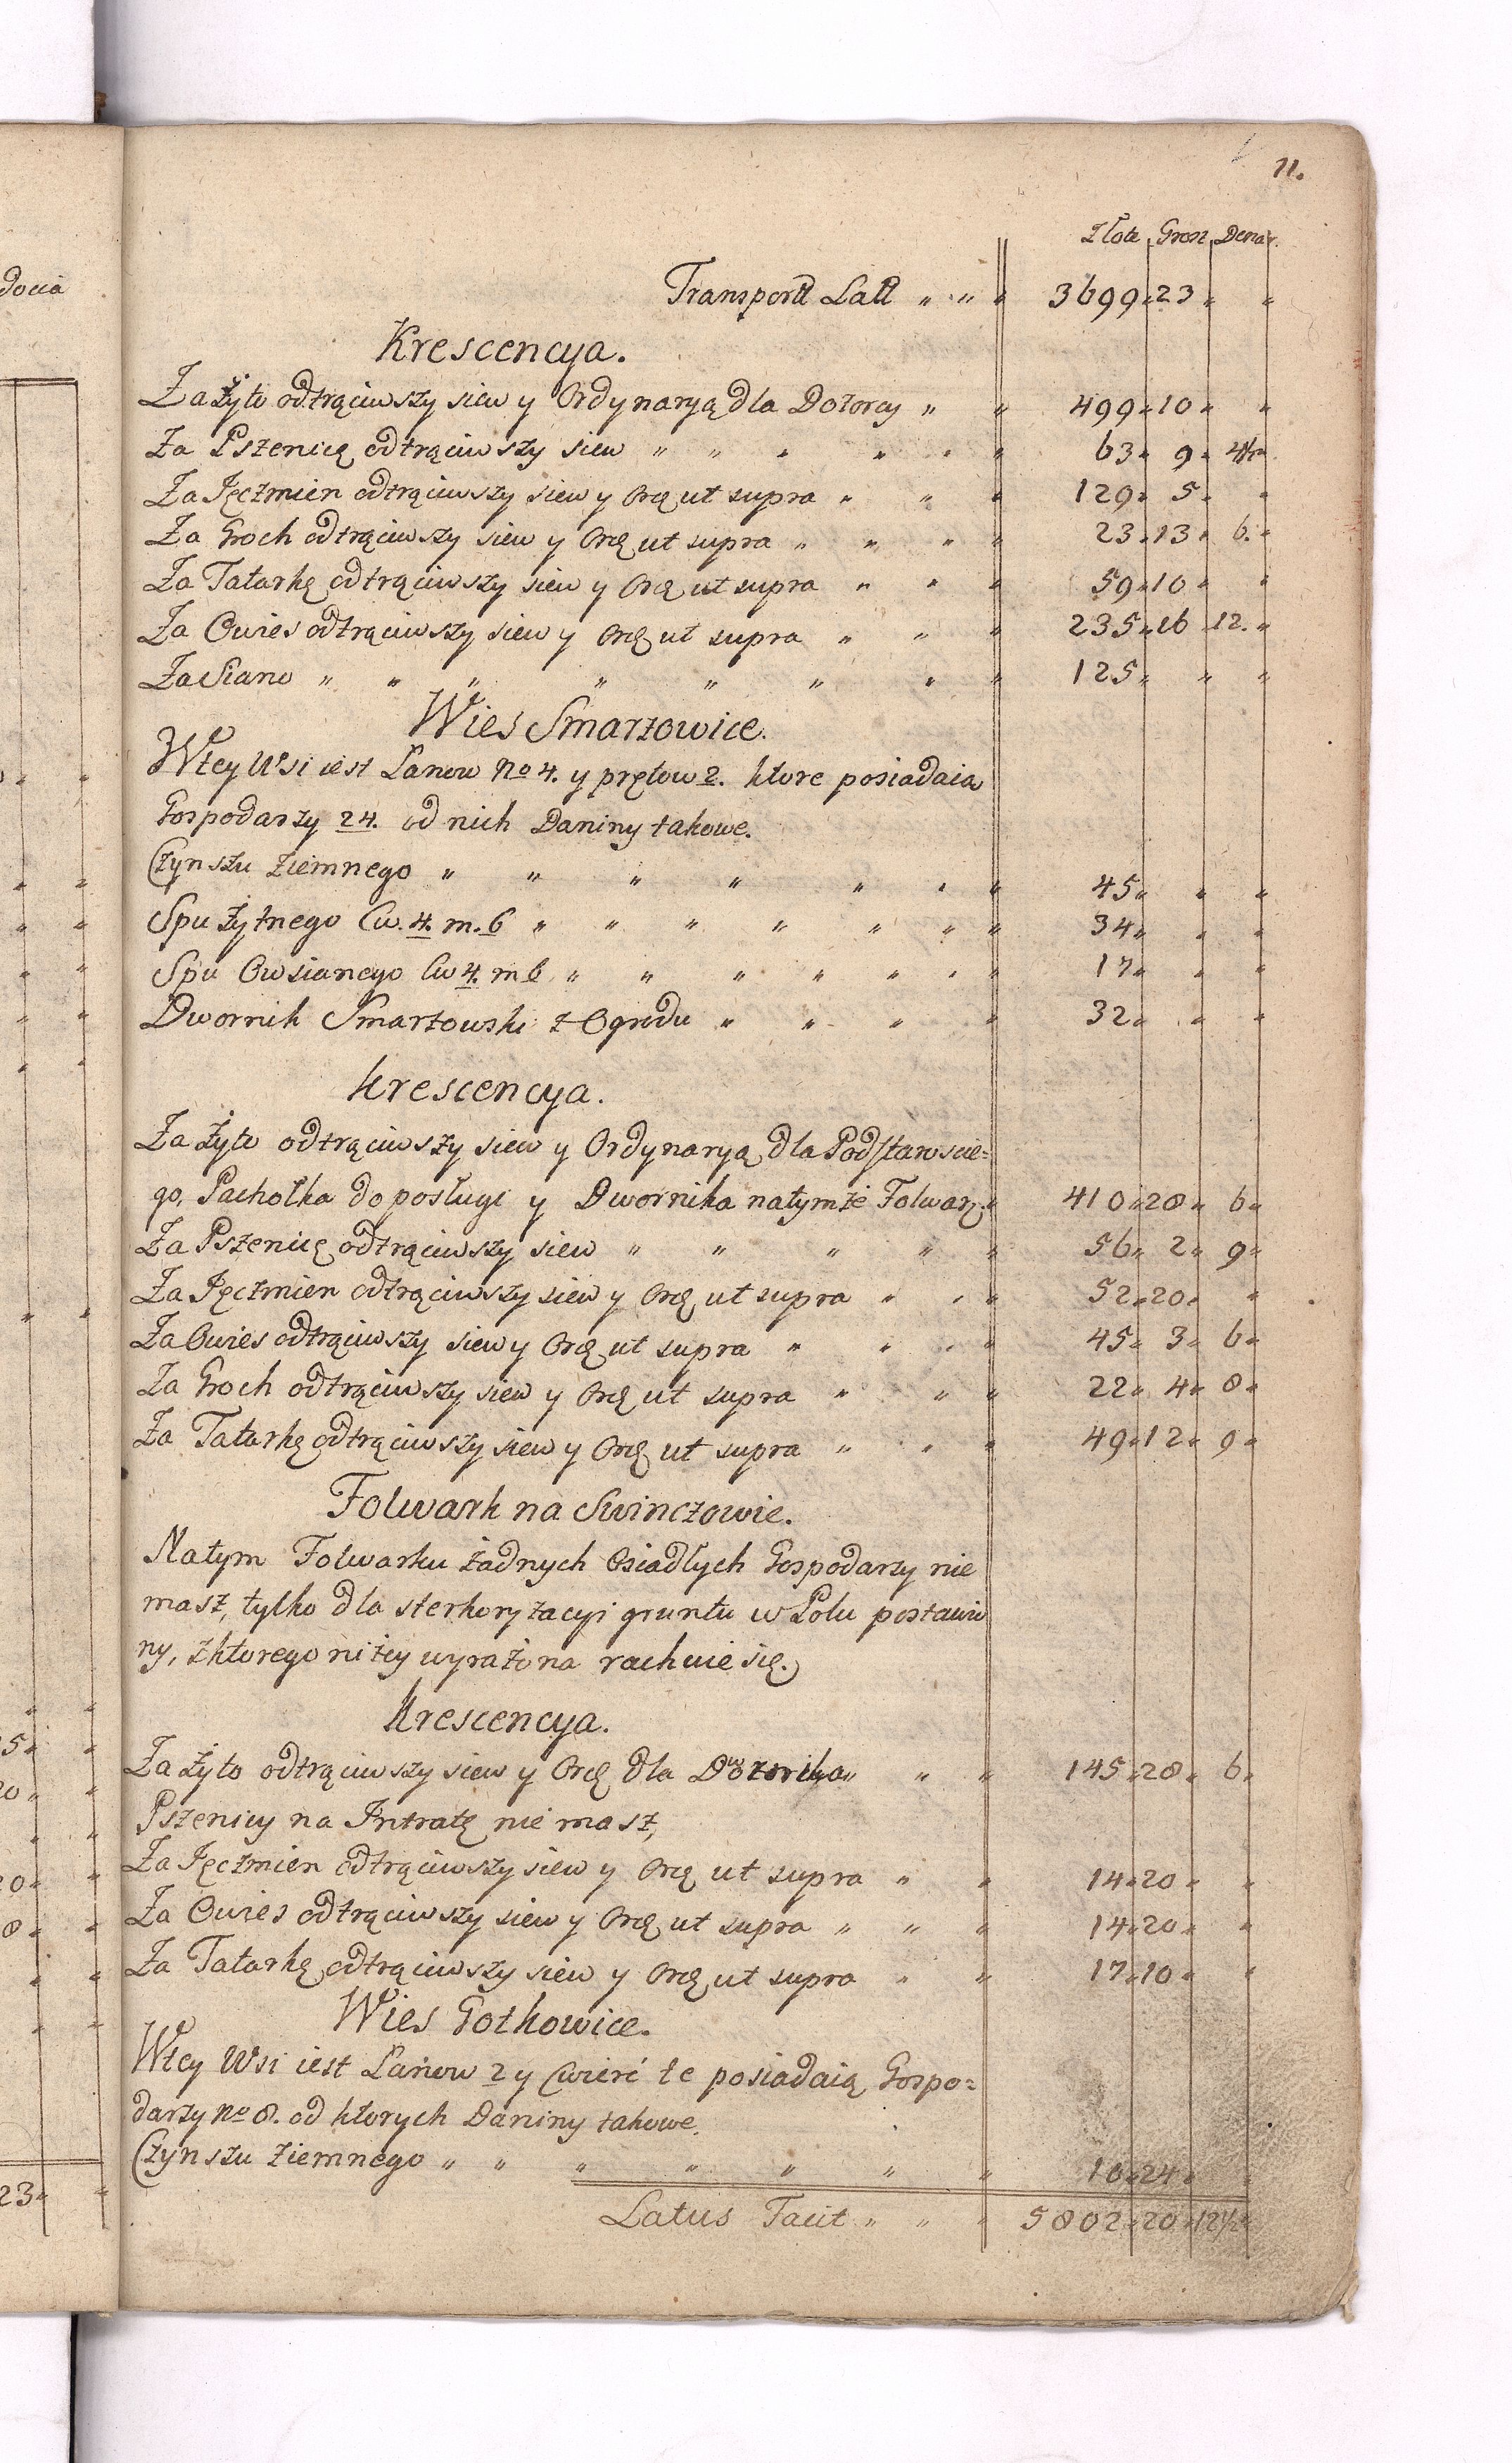 11.
Złote Grosz Denar.
Transport Lat " " " 3699 " 23 " "
Krescencya.
Za Żyto odtrąciwszy siew y Ordynaryą dla Dozorcy " " 499 " 10 " "
Za Pszenicę odtrąciwszy siew " " " " " " 63 " 9 "
Za Jęczmien odtrąciwszy siew y Orę ut supra " " " 129 " 5 " "
Za Groch odtrąciwszy siew y Orę ut supra " " " " 23 " 13 " 6. "
Za Tatarkę odtrąciwszy siew y Orę ut supra " " " 59 " 10 " "
Za Owies odtrąciwszy siew y Orę ut supra " " " 235 " 16 12. "
Za Siano " " " " " " " " 125 " " "
Wies Smarzowice.
Wtey Wsi iest Łanow No 4. y prętow 2. ktore posiadaia
Gospodarzy 24. od nich Daniny takowe.
Czynszu Ziemnego " " " " " " " 45 " " "
Spu Żytnego Cw. 4. m. 6 " " " " " " " 34 " " "
Spu Owsianego Cw 4. m 6 " " " " " " " 17 " " "
Dwornik Smarzowski z Ogrodu " " " " 32 " " "
Krescencya.
Za Żyto odtrąciwszy siew y Ordynaryą dla Podstaroscie=
go, Pachołka do posługi y Dwornika natymże Folwar. " 410 " 28 " 6 "
Za Pszenicę odtrąciwszy siew " " " " " 56 " 2 " 9 "
Za Jęczmien odtrąciwszy siew y Orę ut supra " " " 52 " 20 " "
Za Owies odtrąciwszy siew y Orę ut supra " " " " 45 " 3 " 6 "
Za Groch odtrąciwszy siew y Orę ut supra " " " 22 " 4 " 8 "
Za Tatarkę odtrąciwszy siew y Orę ut supra " " " 49 " 12 " 9 "
Folwark na Swinczowie.
Natym Folwarku żadnych Osiadłych Gospodarzy nie
masz, tylko dla sterkoryzacyi gruntu w Polu postawio
ny, z ktorego niżey wyrażona rachuie się.
Krescencya.
Za Żyto odtrąciwszy siew y Orę dla " " 145 " 28 " 6 "
Pszenicy na Intratę nie masz,
Za Jęczmien odtrąciwszy siew y Orę ut supra " " 14 " 20 " "
Za Owies odtrąciwszy siew y Orę ut supra " " " 14 " 20 " "
Za Tatarkę odtrąciwszy siew y Orę ut supra " " 17 " 10 " "
Wies Gotkowice.
Wtey Wsi iest Łanow 2 y Cwierć te posiadaią Gospo=
darzy No 8. od ktorych Daniny takowe.
Czynszu Ziemnego " " " " " " " 18 " 24 " "
Latus Facit " " " 5802 " 20 " 12½ "